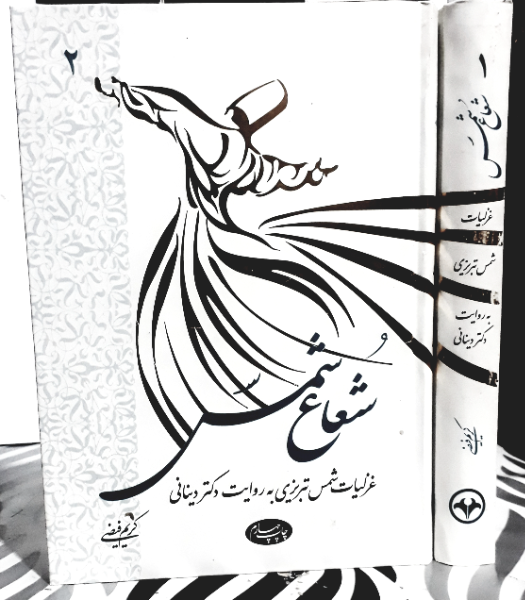 ۲
شعاع شمس
غزلیات شمس تبریزی به روایت دکتر دینانی
کریم فیضی
چاپ چهارم
۱
شعاع شمس
غزلیات
شمس تبریزی
به روایت
دکتر دینانی
کریم فیضی